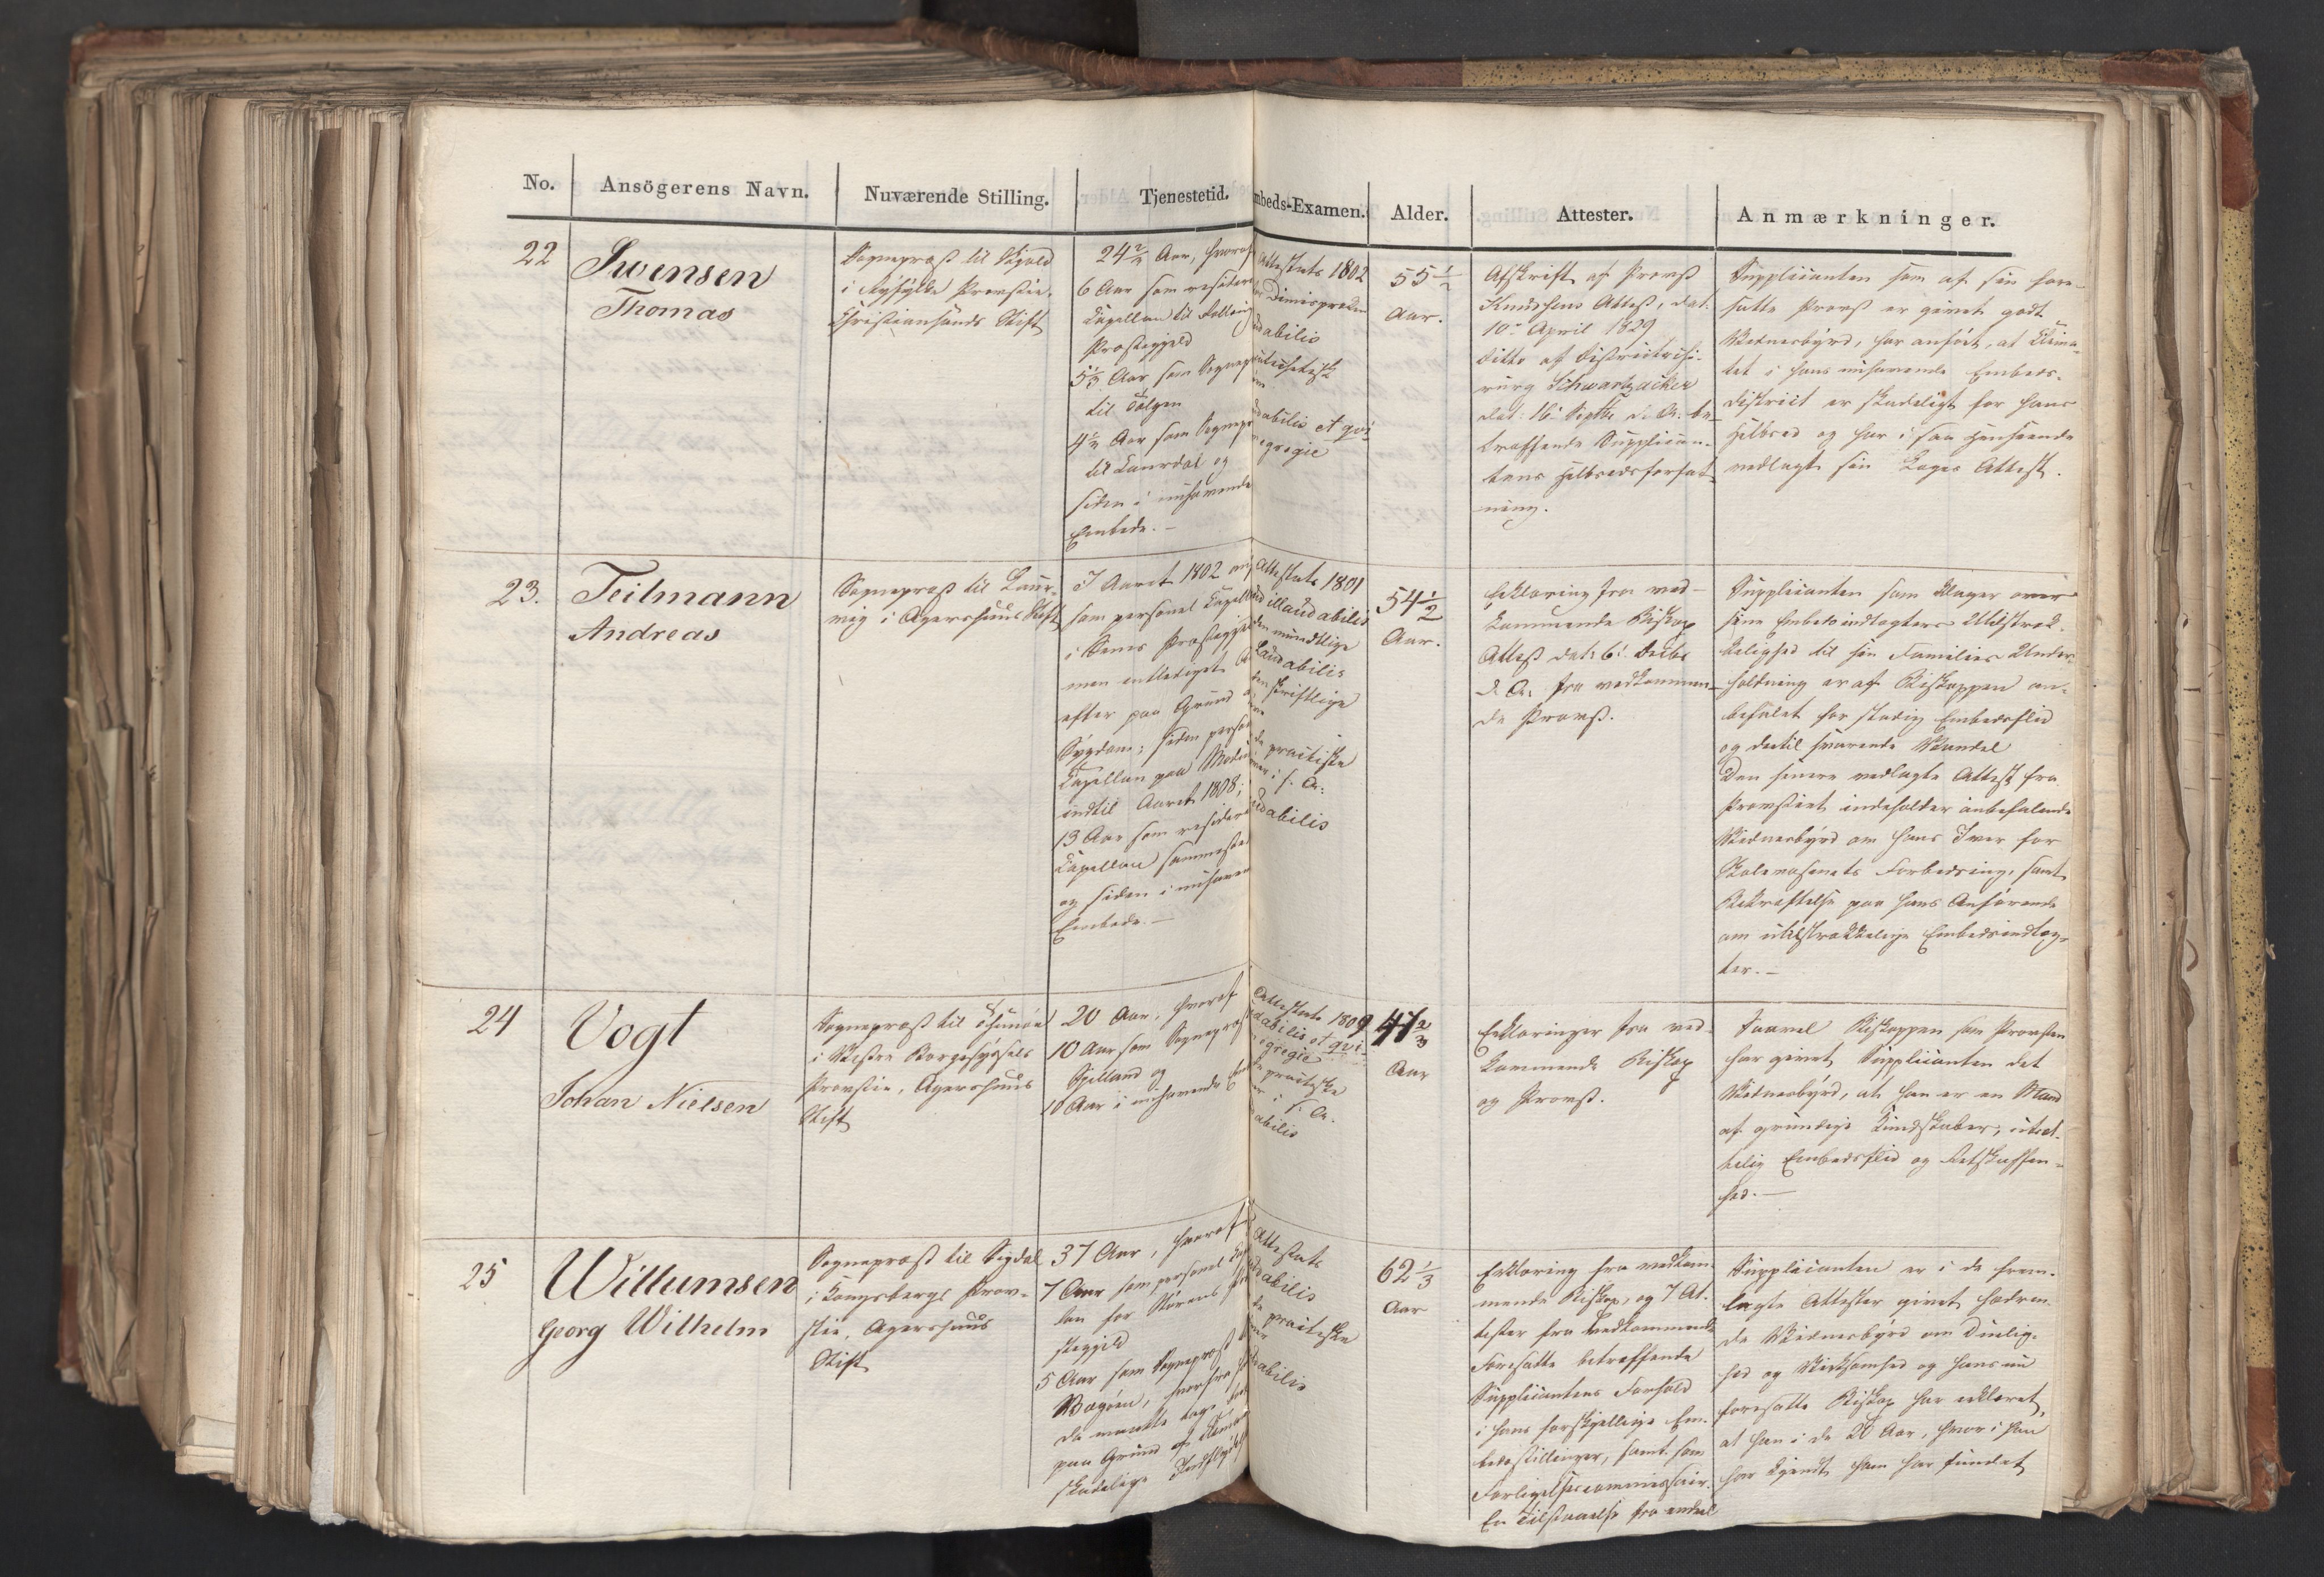 No.
Ansögerens Navn.
Nuværende Stilling.
Tjenestetid.
mbeds-Examen.
Alder.
Attester.
Anmærkninger.
22
Swensen
Thomas
Sognepræst til
i Provstie,
Christiansands Stift
24 2/4 Aar, hvoraf
6 Aar som
Capellan til
Præstegjeld
5 1/3 Aar som
til
4 1/2 Aar som
til Laurdal og
siden i nuhavende
Embede. –
Attestats 1802
Dimisprædiken
abilis
abilis et qvi-
egregie
55 1/2
Aar.
Afskrift af Provst
Knudsens Attest, dat:
10de April 1829
ditto af Districtschi-
rurg Schwartzacker
dat: 16 Septbr d. A. be-
træffende Supplican-
tens Helbredsforfat-
ning.
Supplicanten som af sin fore-
satte Provst er givet godt
Vidnesbyrd, har anført, at Clima-
tet i hans nuhavende Embeds-
district er skadeligt for hans
Helbred og har i saa Henseende
vedlagt sin Læges Attest.
23.
Teilmann
Andreas
Sognepræst til Laur-
vig i Agershuus Stift
I Aaret 1802
som personel
i Præstegjeld
men entlediget
efter paa Grund
Sygdom; siden
Capellan paa Modum
indtil Aaret 1808;
13 Aar som
Capellan sammesteds
og siden i
Embede. –
Attestats 1801
illaudabilis
den mundtlige
Laudabilis
skriftlige
practiske
i s. A.
abilis
54 1/2
Aar.
Erklæring fra ved-
kommende Biskop
Attest dat: 6 Decbr
d. A. fra vedkommen-
de Provst.
Supplicanten som klager over
sine Embedsindtægters Utilstræk-
kelighed til sin Families Under-
holdning er af Biskoppen an-
befalet for stadig Embedsflid
og dertil svarende Vandel
Den senere vedlagte Attest fra
Provstiet indeholder anbefalende
Vidnesbyrd om hans Iver for
Skolevæsenets Forbedring, samt
Bekræftelse paa hans Anførende
om utilstrækkelige Embedsindtæg-
ter. –
24
Vogt
Johan Nielsen
Sognepræst til Thunøe
i Vestre Borgesyssels
Provstie, Agershuus
Stift
20 Aar, hvoraf
10 Aar som Sognepræst
og
10 Aar i nuhavende
Attestats 1809
dabilis et qvi-
egregie
practiske
i s. A.
abilis
47 2/3
Aar
Erklæringer fra ved-
kommende Biskop
og Provst.
Saavel Biskoppen som Provsten
har givet Supplicanten det
Vidnesbyrd, at han er en Mand
af grundige Kundskaber, udmær-
kelig Embedsflid og Retskaffen-
hed. –
25
Willumsen
Georg Wilhelm
Sognepræst til Sigdal
i Kongsbergs Prov-
stie, Agershuus
Stift
37 Aar, hvoraf
7 Aar som personel
lan for Størens
stegjeld
5 Aar som Sognepræst
Vægøen, hvorfra
da maatte tage
paa Grund af
skadelige Indflydelse
Attestats
abilis
practiske
abilis
62 1/3
Aar
Erklæring fra vedkom-
mende Biskop, og 7 At-
tester fra vedkommende
Foresatte betræffende
Supplicantens Forhold
i hans forskjellige Em-
bedsstillinger, samt som
Forligelsescommissair.
En Tilstaaelse fra endeel
Supplicanten er i de frem-
lagte Attester givet hædren-
de Vidnesbyrd om Duelig-
hed og Virksomhed og hans nu
foresatte Biskop har erklæret,
at han i de 20 Aar, hvori han
har kjendt ham har fundet